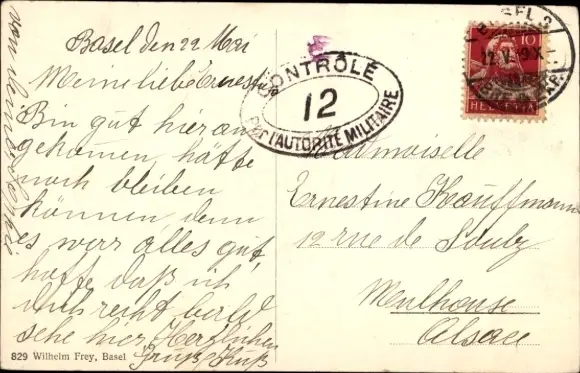 Basel den 22 Mai
Meine liebe Ernestine
Bin gut hier an
gekommen, hätte
noch bleiben
können denn
es war alles gut,
hoffe daß ich
dich recht bald
sehe hier, Herzlichen
Gruß Kuß
von
829 Wilhelm Frey, Basel
CONTRÔLE
12
PAR L'AUTORITÉ MILITAIRE
10
HELVETIA
BASEL 2
Mademoiselle
Ernestine Kauffmann
12 rue de Soultz
Mulhouse
Alsace